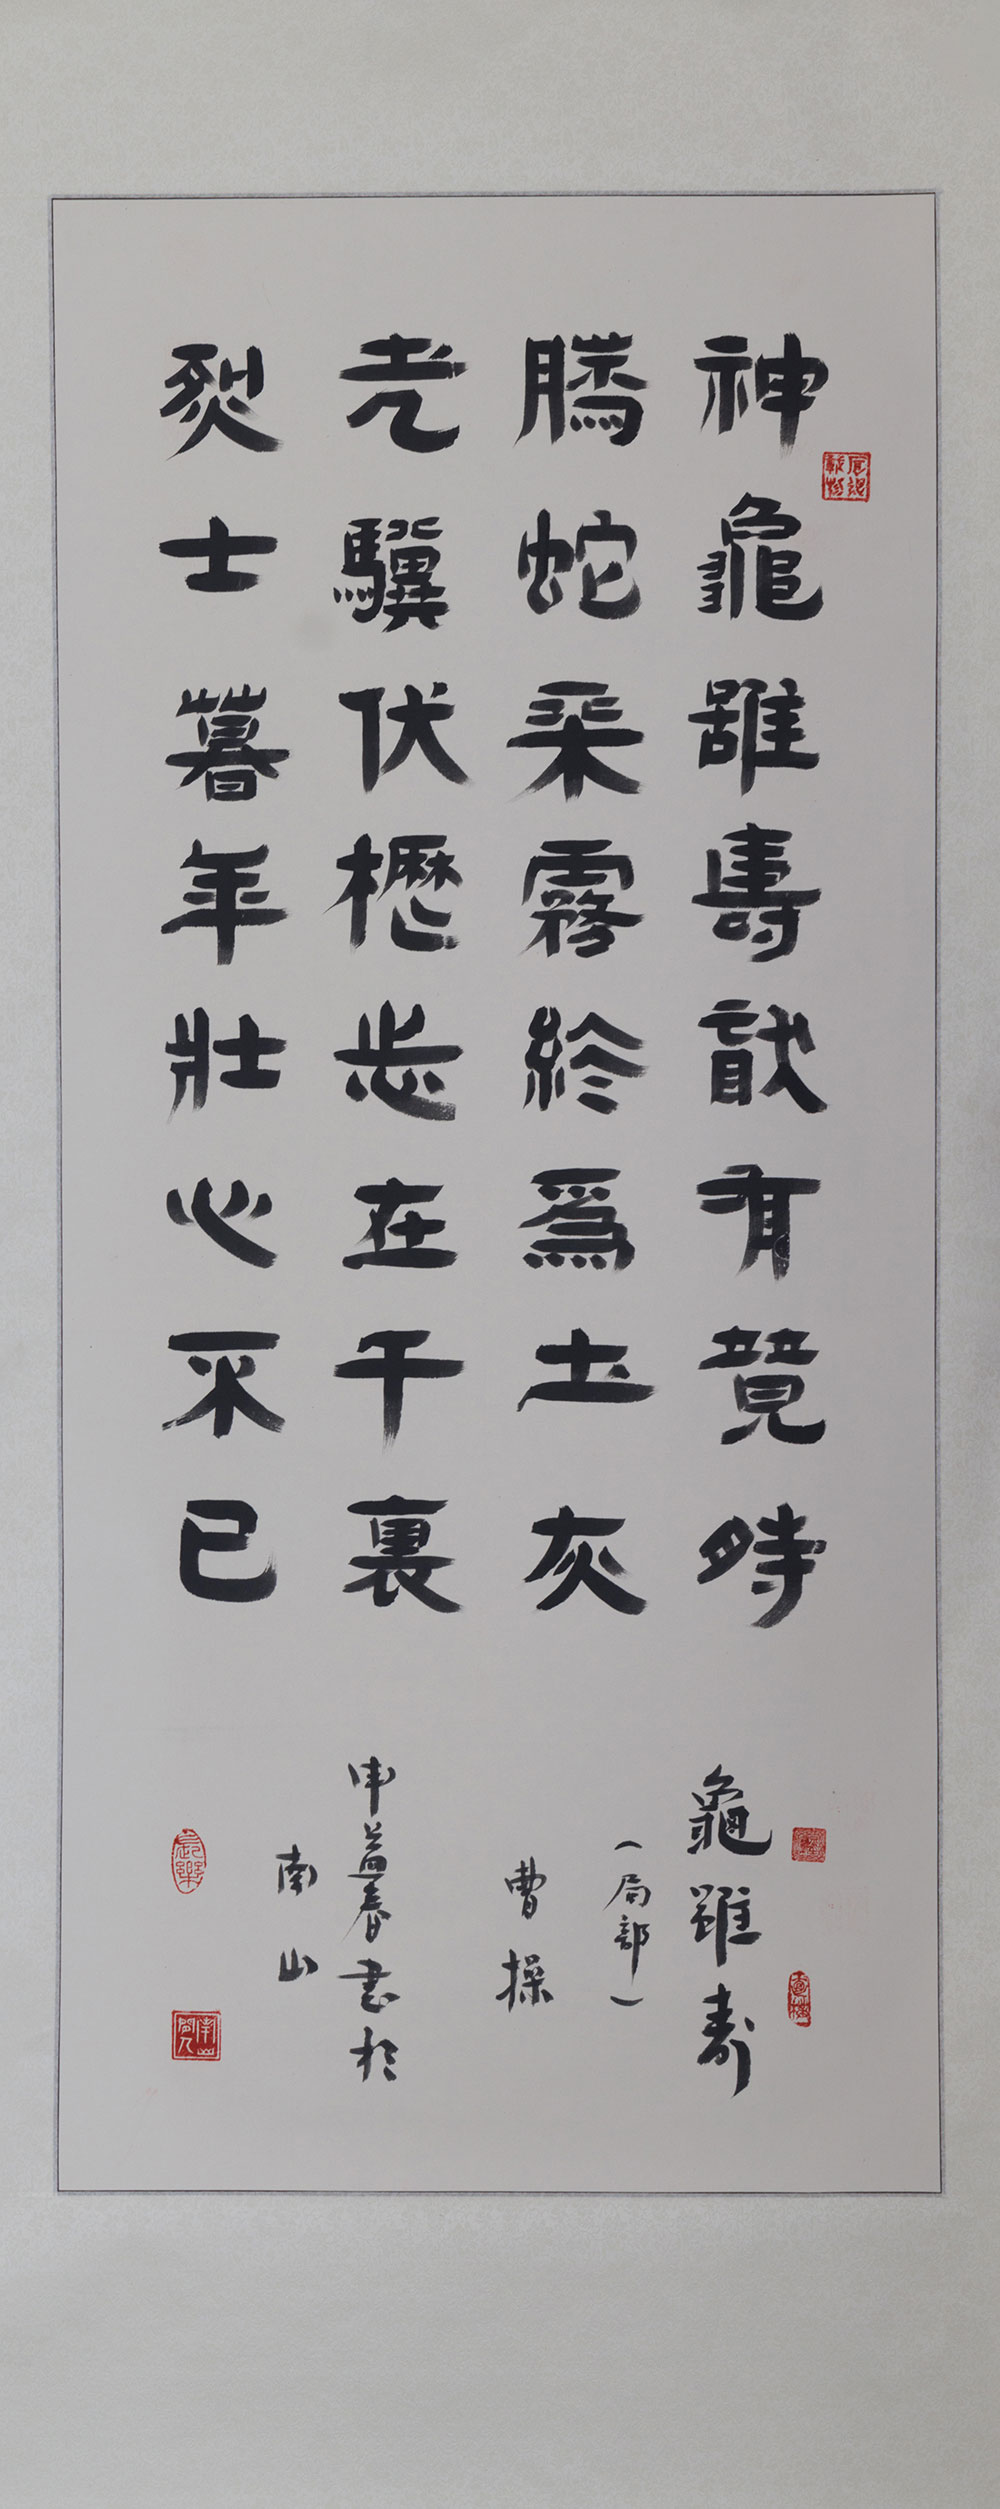 神龜雖壽猷有竟時
騰蛇乘霧終爲土灰
老驥伏櫪志在千裏
烈士暮年壯心不已
龜雖壽
（局部）
曹操
申益春書於
南山
厚德載物
長樂